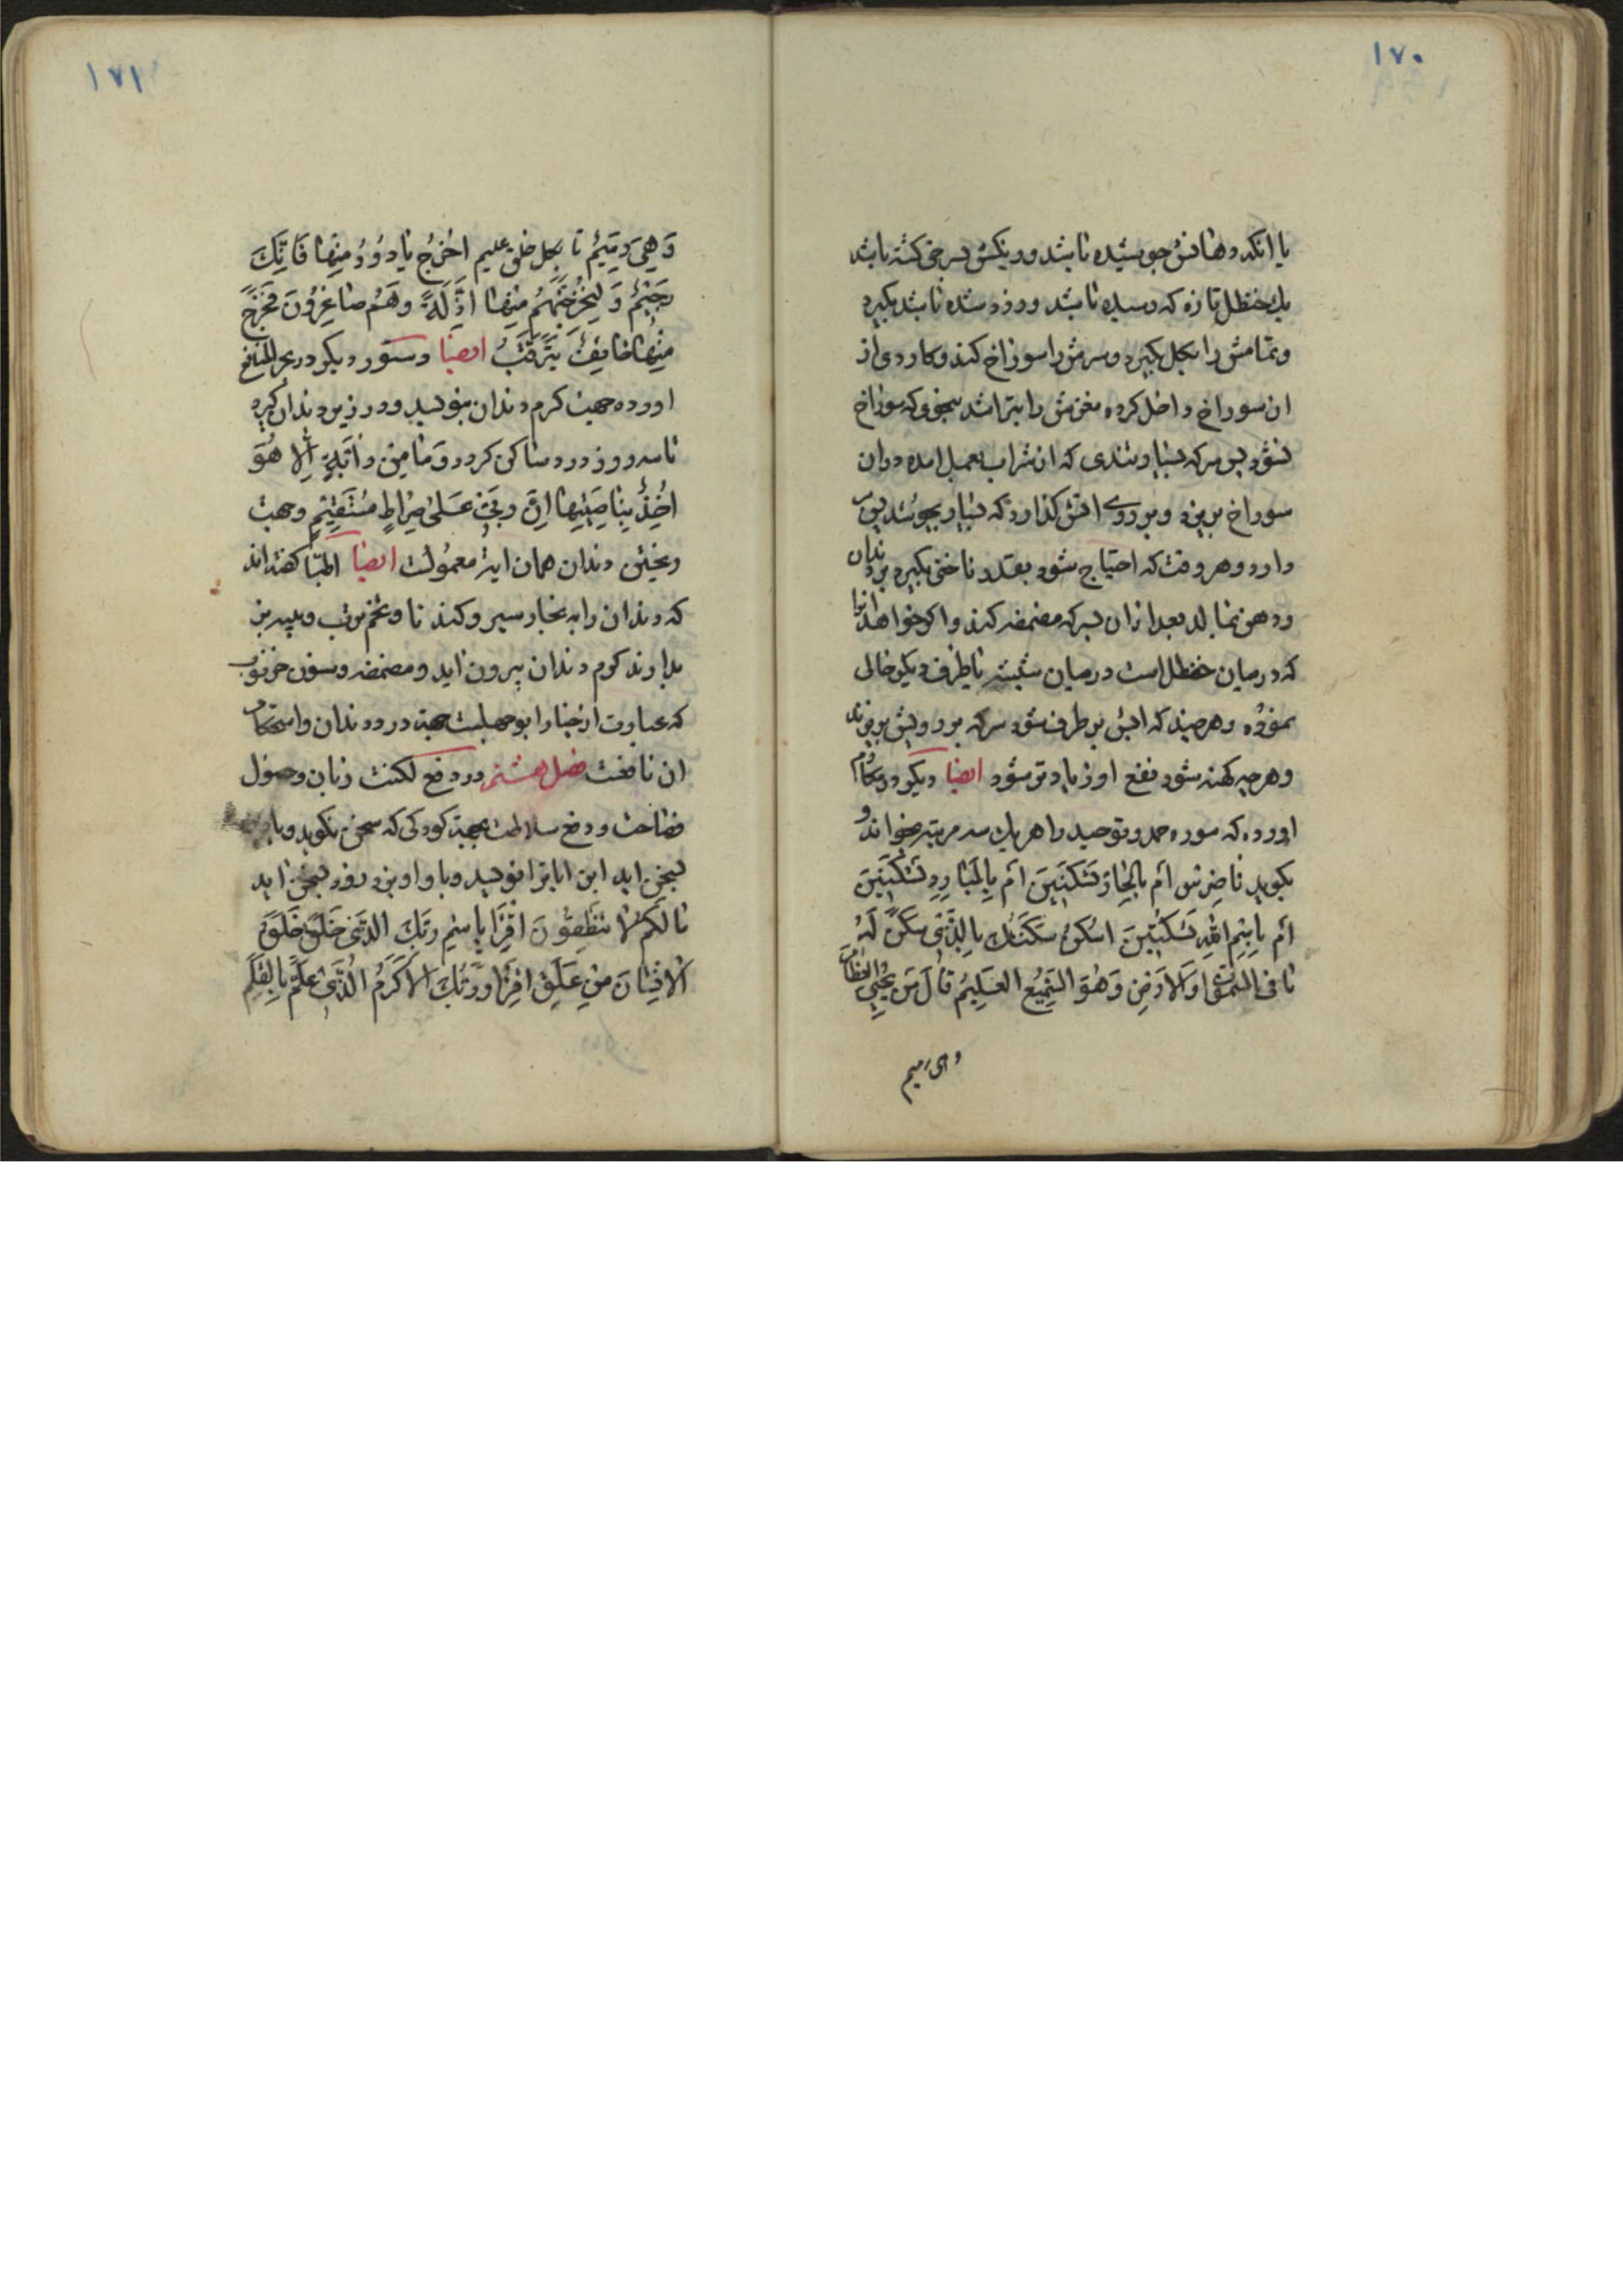 ۱۷۰
یا انکه دهانش جوشیده باشد و رنکش بسرخی کشته باشد
یك حنظل تازه که رسیده باشد و زرد شده باشد بکیرد
و تمامش را بکل بکیرد و سرش را سوراخ کند و کاردی از
ان سوراخ داخل کرده مغزش را بتراشد بنحوی که سوراخ
نشود پس سرکه بسیار تندی که از شراب بعمل امده در ان
سوراخ بریزد و بر روی اتش کذارد که بسیار بجوشد پس
دارد و هر وقت که احتیاج شود بقدر ناخنی بکیرد بر دندان
و دهن بمالد بعد از ان بسرکه مضمضه کند و اکر خواهد انرا
که در میان حنظل است در میان شیشه یا ظرف دیکر خالی
نموده و هر چند که ابش بر طرف شود سرکه بر رویش بریزند
و هر چه کهنه شود نفع او زیاد تر شود ایضا دیکر در مکارم
اورده که سوره حمد و توحید را هر یك سه مرتبه بخواند و
بکوید یا ضرس أم بالحار تسکنین أم بالبارد تسکنین
أم باسم الله تسکنین اسکن سکنتك بالذی سکن له
ما فی السموات والارض وهو السمیع العلیم قال من یحیی العظام
وهی رمیم
۱۷۱
وهی رمیم تا بکل خلق علیم اخرج یا دود منها فانك
رجیم ولنخرجنهم منها اذلة وهم صاغرون فخرج
منها خایفا یترقب ایضا دستور دیکر در بحر المنافع
اورده جهت کرم دندان بنویسد و در زیر دندان کیرد
تا سه روز درد ساکن کردد وما من دابة الا هو
اخذ بناصیتها ان ربی علی صراط مستقیم و جهت
ریختن دندان همان ایه معمولست ایضا اطبا کفته اند
که دندان را به بخار سیر و کندنا و تخم ترب و پیه بز
بدارند کرم دندان بیرون اید و مضمضه و سنون خرنوب
که عبارت از خیار ابوجهلست جهة درد دندان و استحکام
ان نافعت فصل هشتم در دفع لکنت زبان و حصول
فصاحت و دفع سلاطت بجهة کودکی که سخن نکوید و با
بسخن اید این ایات را نویسد و با او بندد زود بسخن اید
مالکم لا تنطقون اقرا باسم ربك الذی خلق خلق
الانسان من علق اقرا وربك الاکرم الذی علم بالقلم